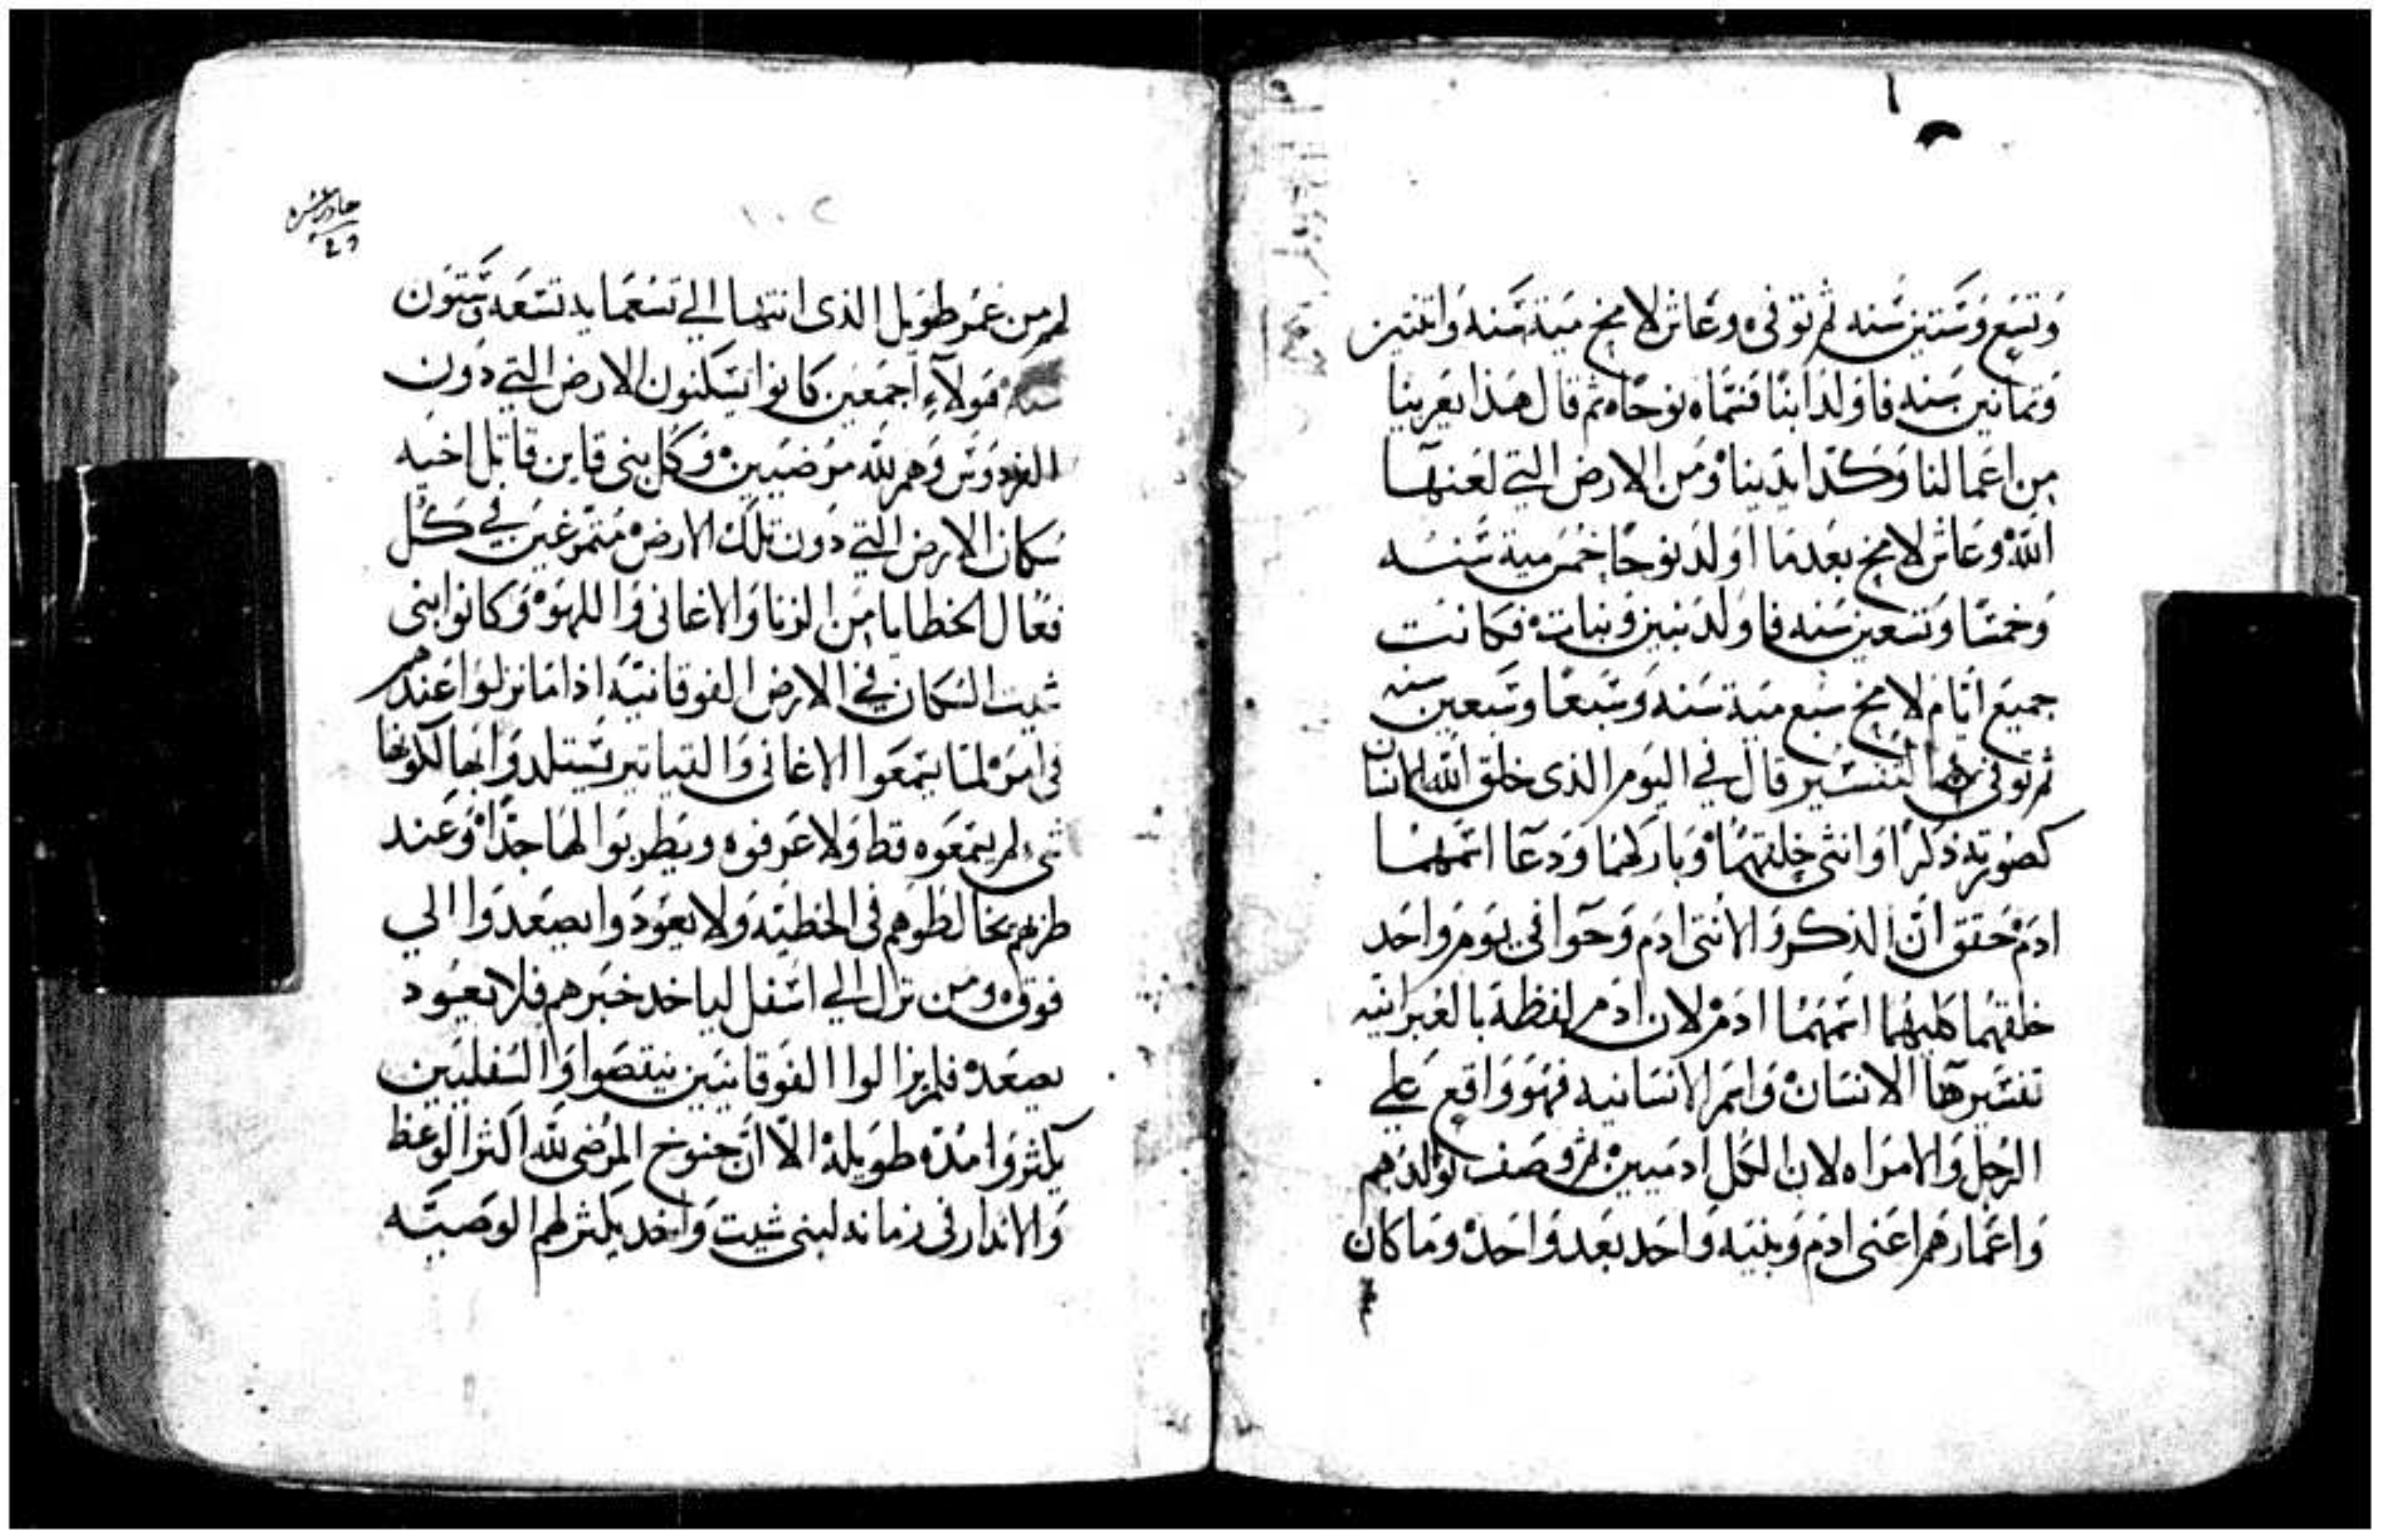 وتسع وستين سنه ثم توفى وعاش لامخ مية سنه واثنتين
وثمانين سنه فاولد ابنًا فسماه نوحًا ثم قال هذا يعزينا
من اعمالنا وكد ايدينا ومن الارض التي لعنها
الله وعاش لامخ بعدما اولد نوحًا خمس مية سنه
وخمسًا وتسعين سنه فاولد بنين وبنات فكانت
جميع ايام لامخ سبع مية سنه وسبعًا وسبعين سنه
ثم توفى التفسير قال في اليوم الذى خلق الله الانسان
كصورته ذكرًا وانثى خلقهما وباركهما ودعا اسمهما
ادم حقق ان الذكر والانثى ادم وحوا في يوم واحد
خلقهما كليهما اسمهما ادم لان ادم لفظة بالعبرانيه
تفسيرها الانسان واسم الانسانيه فهو واقع علي
الرجل والامراه لان الكل ادميين ثم وصف تولدهم
واعمارهم اعنى ادم وبنيه واحد بعد واحد وما كان
١٠٢
لهم من عمر طويل الذى انتها الي تسعمايه تسعه وستون
سنه هولاء اجمعين كانوا يسكنون الارض التي دون
الفردوس وهم لله مرضيين وكل بنى قاين قاتل اخيه
سكان الارض التي دون تلك الارض متمرغين في كل
فعال الخطايا من الزنا والاغانى واللهو وكانوا بنى
شيت السكان في الارض الفوقانيه اذا ما نزلوا عندهم
في امر لما يسمعوا الاغانى والتياتير يستلدوا بها لكونها
شى لم يسمعوه قط ولا عرفوه ويطربوا لها جدًا وعند
طربهم يخالطوهم في الخطيه ولا يعودوا يصعدوا الي
فوق ومن نزل الي اسفل لياخد خبرهم فلا يعود
يصعد فلم يزالوا الفوقانيين ينقصوا والسفليين
يكثروا مده طويله الا ان خنوخ المرضى لله اكثر الوعظ
والاندار في زمانه لبنى شيت واخد يكثر لهم الوصيه